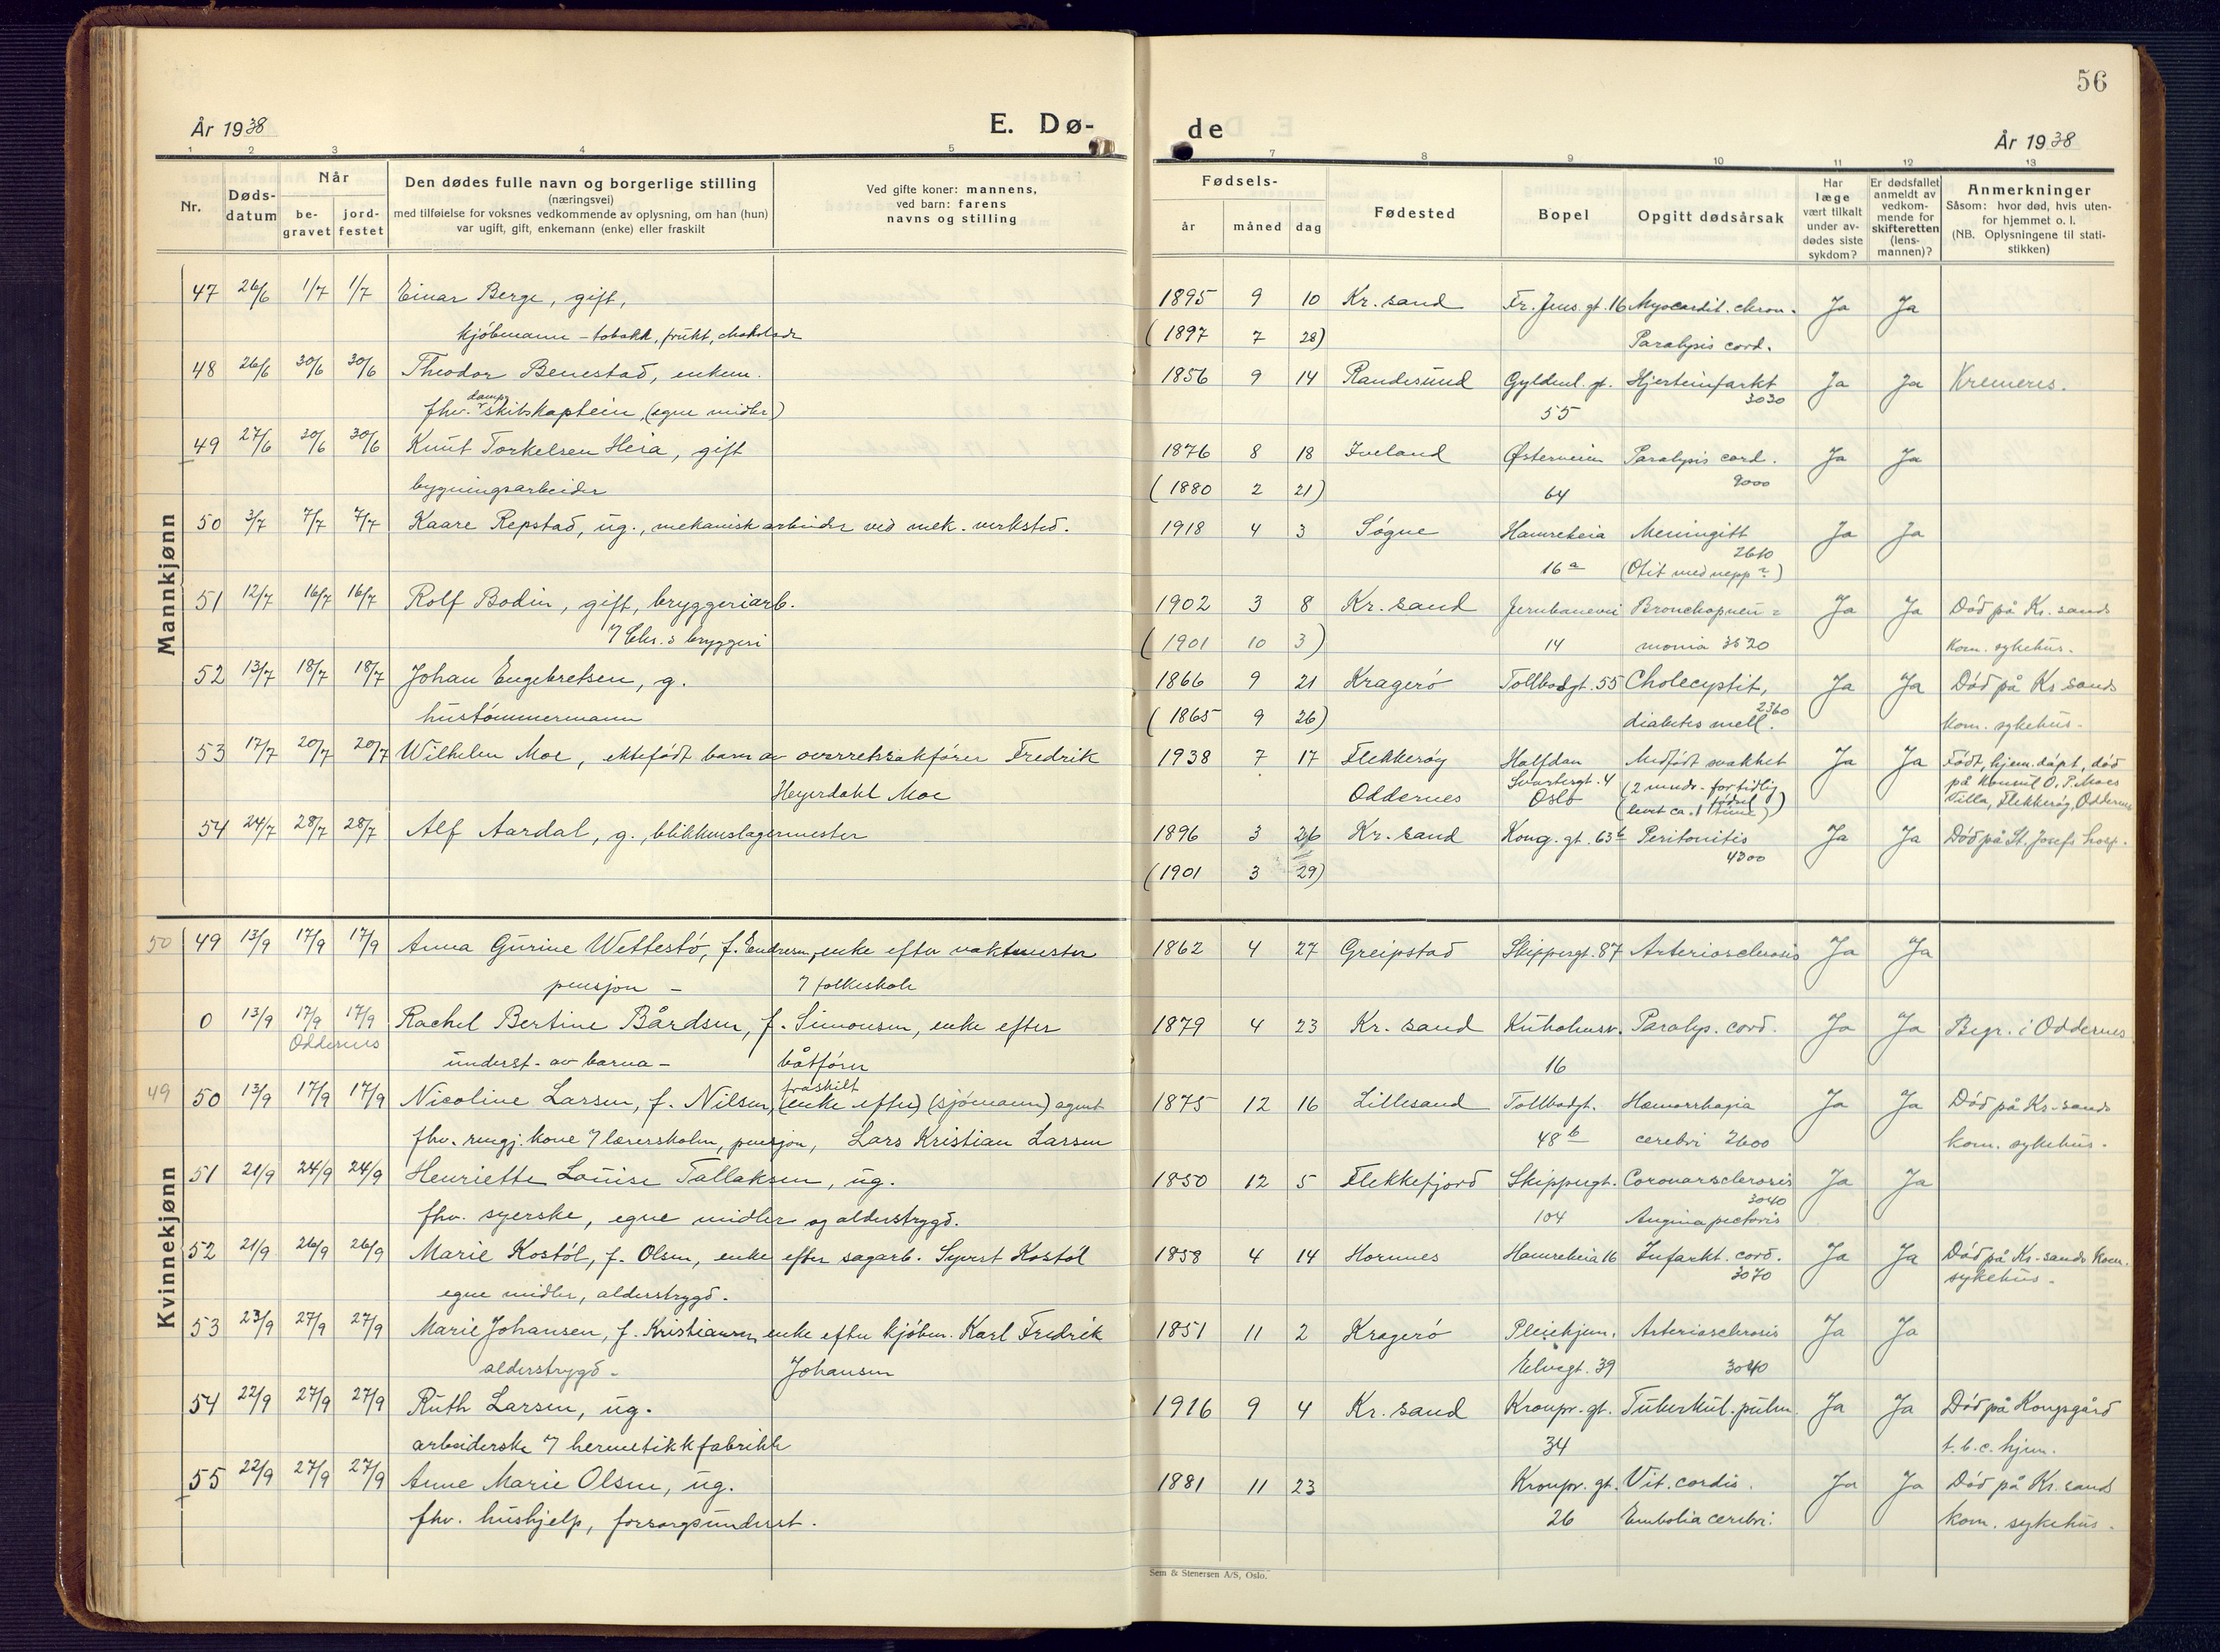 56
År 1938
E. Dø-
de
År 1938
1 2 3 4 5 7 8 9 10 11 12 13
Nr.
Døds-
datum
Når
be-
gravet
jord-
festet
Den dødes fulle navn og borgerlige stilling
(næringsvei)
med tilføielse for voksnes vedkommende av oplysning, om han (hun)
var ugift, gift, enkemann (enke) eller fraskilt
Ved gifte koner: mannens,
ved barn: farens
navns og stilling
Fødsels-
år måned dag
Fødested
Bopel
Opgitt dødsårsak
Har
læge
vært tilkalt
under av-
dødes siste
sykdom?
Er dødsfallet
anmeldt av
vedkom-
mende for
skifteretten
(lens-
mannen)?
Anmerkninger
Såsom: hvor død, hvis uten-
for hjemmet o. l.
(NB. Oplysningene til stati-
stikken)
Mannkjønn
47 26/6 1/7 1/7 Einar Berge, gift, 1895 9 10 Kr. sand Fr. Jens. gt. 16 Myocardit. chron. Ja Ja
kjøbmann - tobakk, frukt, chokolade (1897 7 28) Paralysis cord.
48 26/6 30/6 30/6 Theodor Benestad, enkem. 1856 9 14 Randesund Gyldenl. gt. Hjerteinfarkt Ja Ja Kremeres.
3030
fhv. damp skibskaptein, (egne midler) 55
49 27/6 30/6 30/6 Knut Torkelsen Heia, gift 1876 8 18 Iveland Østerveien Paralysis cord. Ja Ja
9000
bygningsarbeider (1880 2 21) 64
50 3/7 7/7 7/7 Kaare Repstad, ug., mekanisk arbeider ved mek. verksted. 1918 4 3 Søgne Hamreheia Meningitt Ja Ja
2610
16a (Otit med nepp?)
51 12/7 16/7 16/7 Rolf Bodin, gift, bryggeriarb. 1902 3 8 Kr. sand Jernbanevei Bronchopneu= Ja Ja Død på Kr. sands
Chr.s bryggeri (1901 10 3) 14 monia 3520 kom. sykehus.
52 13/7 18/7 18/7 Johan Engebretsen, g. 1866 9 21 Kragerø Tollbodgt. 55 Cholecystit, Ja Ja Død på Kr sands
2360
hustømmermann (1865 9 26) diabetes mell. kom. sykehus.
53 17/7 20/7 20/7 Wilhelm Moe, ektefødt barn av overretssakfører Fredrik 1938 7 17 Flekkerøy Halfdan Medfødt svakhet Ja Ja Født, hjem.døpt, død
Svartesgt. 4 (2 mndr. for tidlig på Konsul O. P. Moes
Heyerdahl Moe Oddernes Oslo fødsel) Villa, Flekkerøy, Oddernes
(levet ca. 1 time)
54 24/7 28/7 28/7 Alf Aardal, g., blikkenslagermester 1896 3 26 Kr. sand Kong. gt. 63b Peritonitis Ja Ja Død på St. Josefs hosp.
4300
(1901 3 29)
Kvinnekjønn
50 49 13/9 17/9 17/9 Anna Gurine Wettestø, f. Endresen, enke efter vaktmester 1862 4 27 Greipstad Skippergt. 87 Arteriosclerosis Ja Ja
pensjon - folkeskole
0 13/9 17/9 17/9 Rachel Bertine Bårdsen, f. Simonsen, enke efter 1879 4 23 Kr. sand Kuholmsv. Paralys. cord. Ja Ja Begr. i Oddernes
Oddernes
underst. av barna - båtfører 16
fraskilt
49 50 13/9 17/9 17/9 Nicoline Larsen, f. Nilsen, (enke efter) (sjømann) agent 1875 12 16 Lillesand Tollbodgt. Hæmorrhagia Ja Ja Død på Kr. sands
fhv. rengj. kone lærerskolen, pensjon, Lars Kristian Larsen 48b cerebri 2600 kom. sykehus.
51 21/9 24/9 24/9 Henriette Louise Tallaksen, ug. 1850 12 5 Flekkefjord Skippergt. Coronarsclerosis Ja Ja
3040
fhv. syerske, egne midler og alderstrygd. 104 Angina pectoris
52 21/9 26/9 26/9 Marie Kostøl, f. Olsen, enke efter sagarb. Syvert Kostøl 1858 4 14 Hornnes Hamreheia 16 Infarkt. cord. Ja Ja Død på Kr. sands Kom.
3070 sykehus.
egne midler, alderstrygd.
53 23/9 27/9 27/9 Marie Johansen, f. Kristiansen, enke efter kjøbm. Karl Fredrik 1851 11 2 Kragerø Pleiehjem. Arteriosclerosis Ja Ja
alderstrygd - Johansen Elvegt. 39 3040
54 22/9 27/9 27/9 Ruth Larsen, ug. 1916 9 4 Kr. sand Kronpr. gt. Tuberkul. pulm. Ja Ja Død på Kongsgård
arbeiderske hermetikkfabrikk 34 t. b. c. hjem.
55 22/9 27/9 27/9 Anne Marie Olsen, ug. 1881 11 23 Kronpr. gt. Vit. cordis. Ja Ja Død på Kr. sands
fhv. hushjelp, forsorgsunderst. 26 Embolia cerebri. kom. sykehus.
Sem & Stenersen A/S, Oslo.